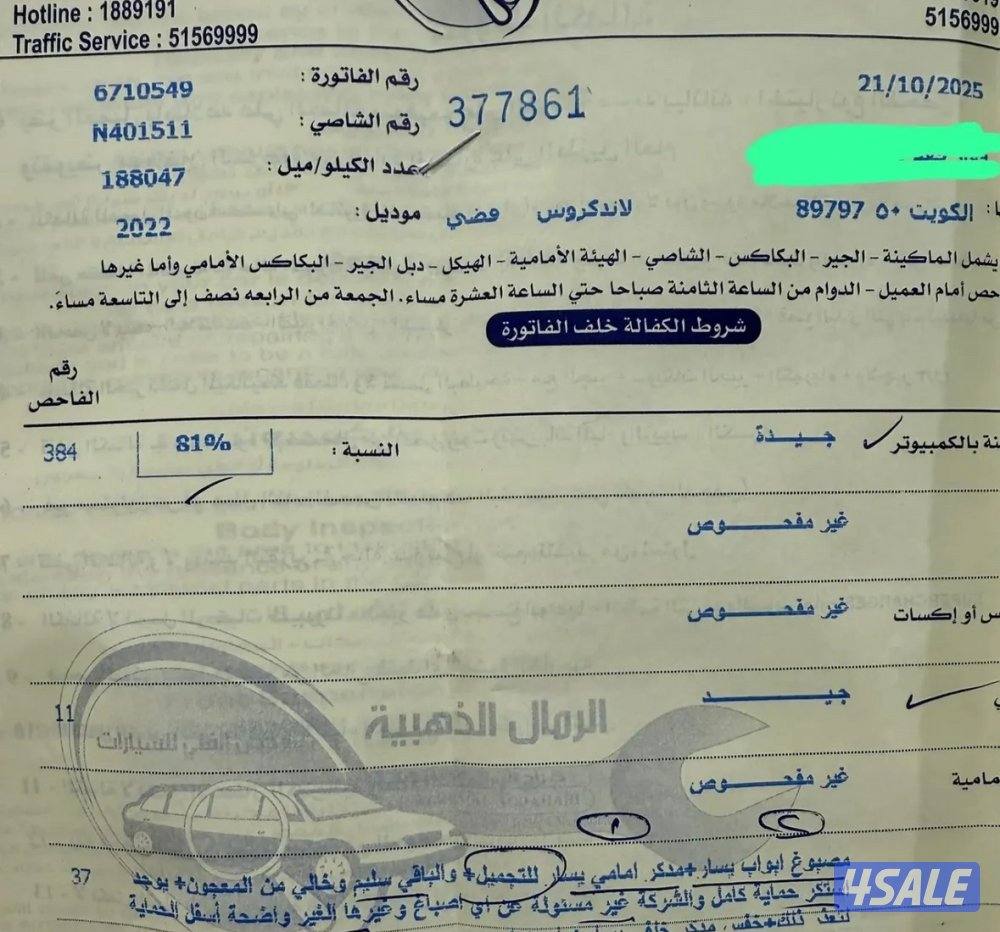 Hotline : 1889191
Traffic Service : 51569999
5156999
21/10/2025
رقم الفاتورة : 6710549
377861
رقم الشاصي : N401511
عدد الكيلو/ميل : 188047
الكويت ٥٠ 89797 لاندكروس فضي موديل : 2022
يشمل الماكينة - الجير - البكاكس - الشاصي - الهيئة الأمامية - الهيكل - دبل الجير - البكاكس الأمامي وأما غيرها
حص أمام العميل - الدوام من الساعة الثامنة صباحا حتي الساعة العشرة مساء. الجمعة من الرابعه نصف إلى التاسعة مساءً.
شروط الكفالة خلف الفاتورة
رقم
الفاحص
نة بالكمبيوتر جيدة النسبة : 81% 384
غير مفحوص
س أو إكسات غير مفحوص
جيد 11
الرمال الذهبية
الفني للسيارات
مامية غير مفحوص
٢ ٣
مصبوغ ابواب يسار+مدكر امامي يسار للتجميل+ والباقي سليم وخالي من المعجون+ يوجد 37
ستكر حماية كامل والشركة غير مسئولة عن أي اصباغ وغيرها الغير واضحة أسفل الحماية
4SALE